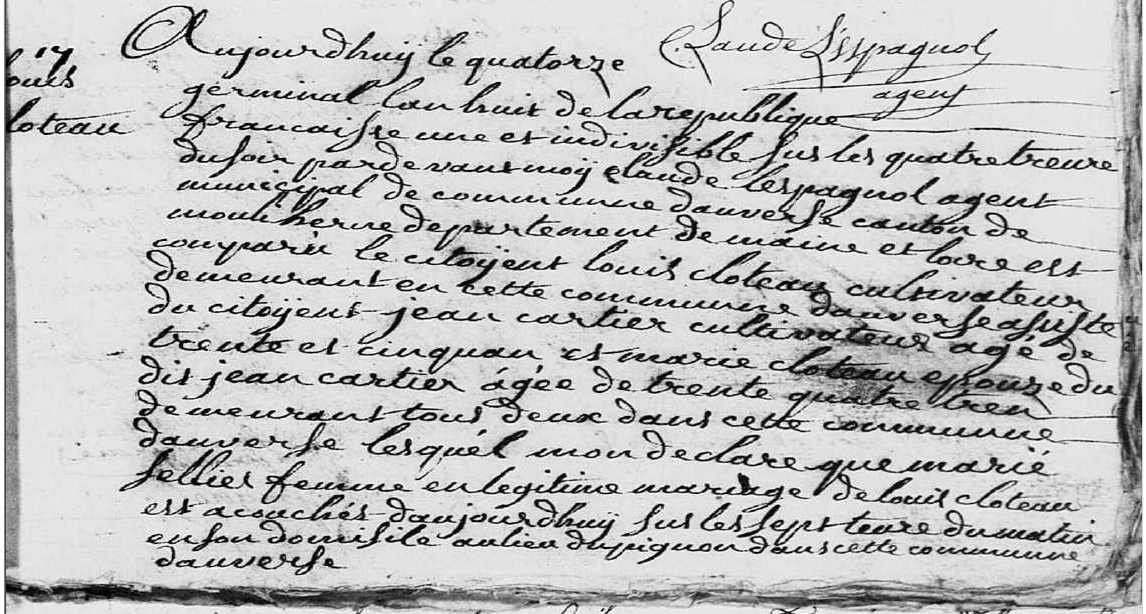 C. Laude Lespagnol
agent
17
louis
cloteau
Aujourdhuÿ le quatorze
gérminal lan huit de la republique
francaisse une et indivisible sus les quatre treure
du soir parde vant moÿ claude lespagnol agent
municipal de commune dauverse canton de
mouliherne departement de maine et loire est
comparu le citoÿent louis cloteau cultivateur
demeurant en cette commune dauverse assiste
du citoÿent jean cartier cultivateur agé de
trente et cinquan et marie cloteau epouze du
dit jean cartier ágée de trente quatre tren
demeurant tous deux dans cette commune
dauverse lesquél mon declare que marie
sellier femme en legitime mariage de louis cloteau
est acouchés daujourdhuÿ sus les sept teure du matin
en son domisile au lieu du pignon dans cette commune
dauverse